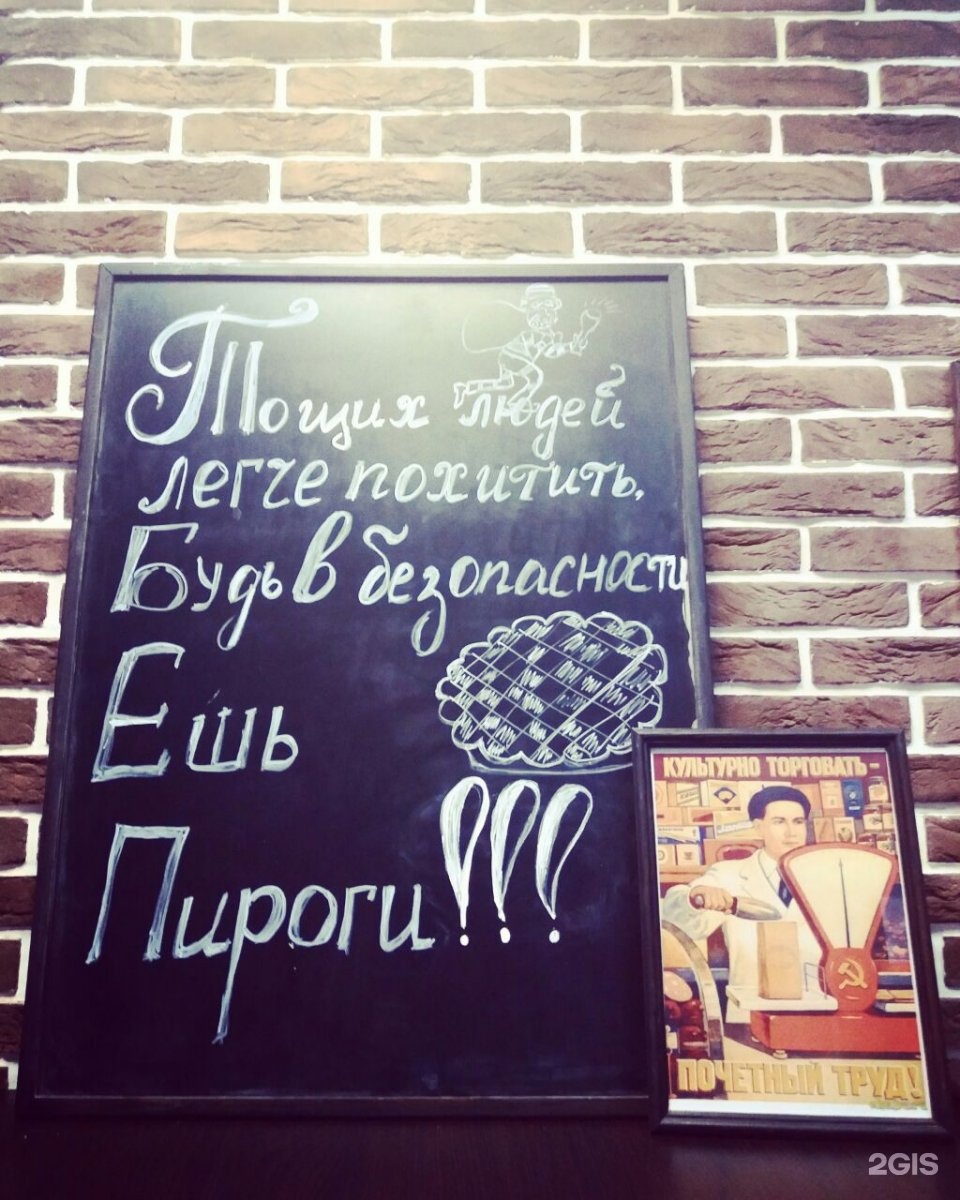 Тощих людей
легче похитить.
Будь в безопасности
Ешь
Пироги!!!
КУЛЬТУРНО ТОРГОВАТЬ -
ПОЧЕТНЫЙ ТРУД!
2GIS